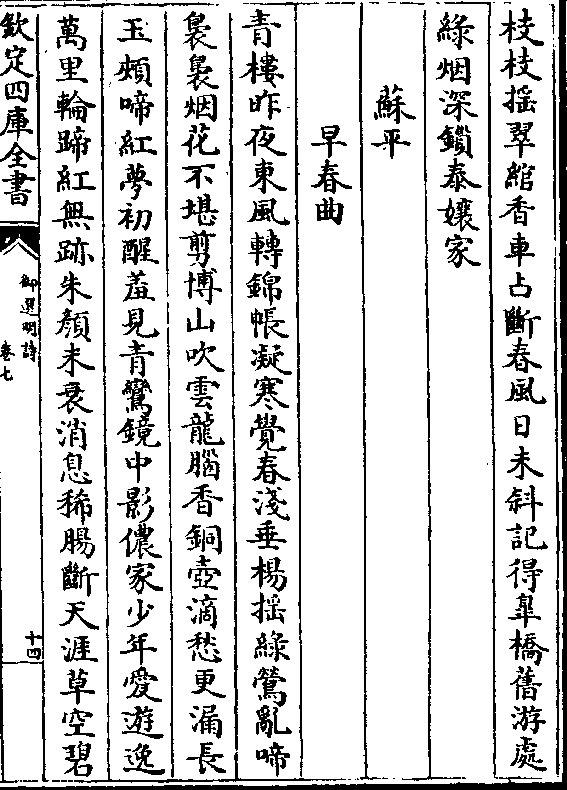 枝枝揺翠綰香車占斷春風日未斜記得臯橋舊游處
綠烟深鎖泰孃家
蘇平
早春曲
青樓昨夜東風轉錦帳凝寒覺春淺垂楊揺綠鶯亂啼
裊裊烟花不堪剪博山吹雲龍腦香銅壺滴愁更漏長
玉頰啼紅夢初醒羞見青鸞鏡中影儂家少年愛遊逸
萬里輪蹄紅無跡朱顔未衰消息稀腸斷天涯草空碧
欽定四庫全書
御選明詩
卷七
十四